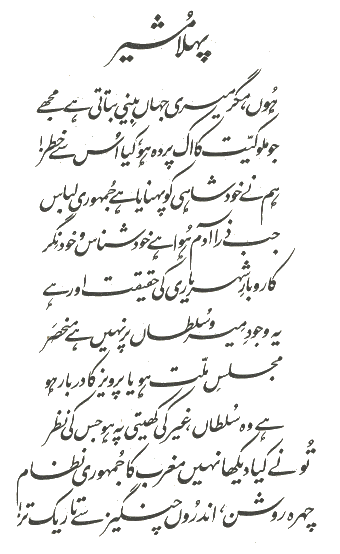 پہلا مُشیر
ہُوں، مگر میری جہاں بینی بتاتی ہے مجھے
جو ملوکیّت کا اک پردہ ہو، کیا اُس سے خطر!
ہم نے خود شاہی کو پہنایا ہے جُمہوری لباس
جب ذرا آدم ہُوا ہے خود شناس و خود نگر
کاروبارِ شہریاری کی حقیقت اور ہے
یہ وجودِ میر و سُلطاں پر نہیں ہے منحصَر
مجلسِ ملّت ہو یا پرویز کا دربار ہو
ہے وہ سُلطاں، غیر کی کھیتی پہ ہو جس کی نظر
تُو نے کیا دیکھا نہیں مغرب کا جُمہوری نظام
چہرہ روشن، اندرُوں چنگیز سے تاریک تر!